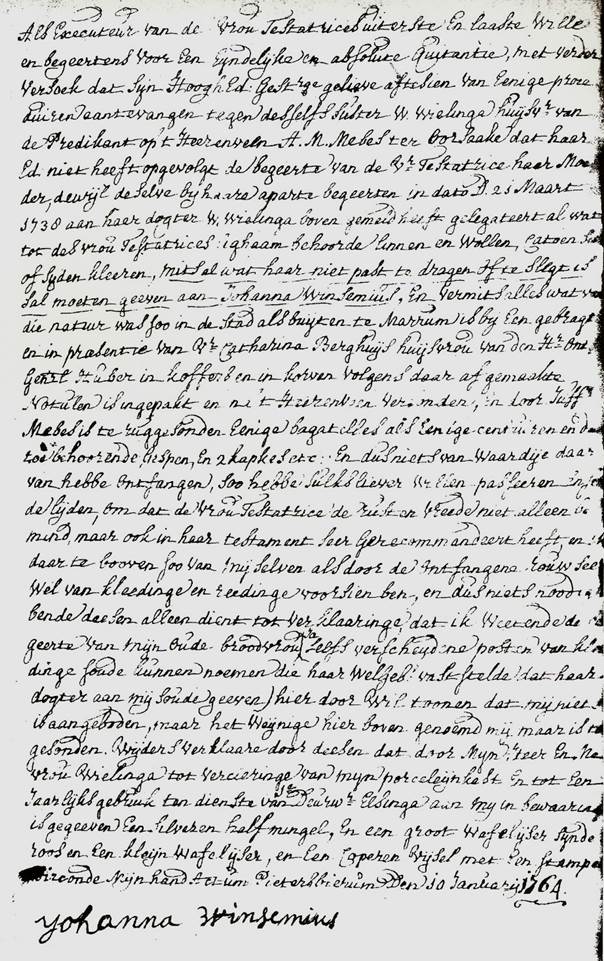 Als Executeur van de Vrou Testatrices uiterste En laaste Wille
en begeertens voor Een Eyndelijke en absolute Quitantie, met verder
versoek dat Sijn Hoogh Ed: Gestrge gelieve af te sien van Eenige proce
duiren aantevangen tegen desselfs suster W. Wielinga huijsvr van
de Predikant op't Heerenveen A. M. Mebes ter oorsaake dat haar
Ed. niet heeft opgevolgt de begeerte van de Vr. Testatrice haer Moe
der, dewijl deselve bij haare aparte begeerten in dato D. 25 Maart
1738 aan haer dogter W. Wielinga boven gemeld heeft gelegateert al wat
tot des Vrou Testatrices lighaam behoorde linnen en Wollen, Catoen
of Syden kleeren, mits al wat haar niet past te dragen Of te Slegt is
sal moeten geeven aan Johanna Winsemius, En vermits alles wat
die natuur was soo in de Stad als buyten te Marrum is by Een gebragt
en in præsentie van Vr. Catharina Berghuijs huijsvrou van den Hr. Ont
Genrl Huber in koffers en in korven volgens daar af gemaakte
Notulen is ingepakt en na 't Heerenveen versonden, En door Juffr
Mebes is te rugge sonden Eenige bagatelles als Eenige centuiren en
toe behoorende gespen, En 2 kapkes etc: En dus niets van Waardije daar
van hebbe Ontfangen, Soo hebbe Sulks liever Willen passeeren En
de lijden, om dat de Vrou Testatrice de rust en Vreede niet alleen
mind, maar ook in haer testament seer Gerecommandeert heeft, en
daar te booven soo van mij selven als door de Ontfangene rouw see
Wel van kleedinge en reedinge voorsien ben, en dus niets nood
bende deesen alleen dient tot Verklaaringe dat ik Weetende de
geerte van mijn Oude broodvrou (Ja Zelfs verscheydene posten van kle
dinge soude kunnen noemen die haar Welgeb: vast stelde dat haar
dogter aan mij soude geeven) hier door Wil toonen dat mij niet
is aangeboden, maar het Weynige hier boven genoemd mij maar is t
gesonden. Wijders verklaare door deesen dat door Mijn Heer En Me
vrou Wielinga tot vercieringe van mijn porceleijnkast En tot Een
Jaarlijks gebruik ten dienste van Deur Vr. Elsinga aan my in bewaaring
is gegeeven Een silveren half mingel, En een groot Wafelijser
roos en Een kleijn Wafelijser, en Een Coperen Vijsel met Een stamper
oirconde Mijn hand Actum Pietersbierum Den 10 January 1764.
Yohanna Winsemius